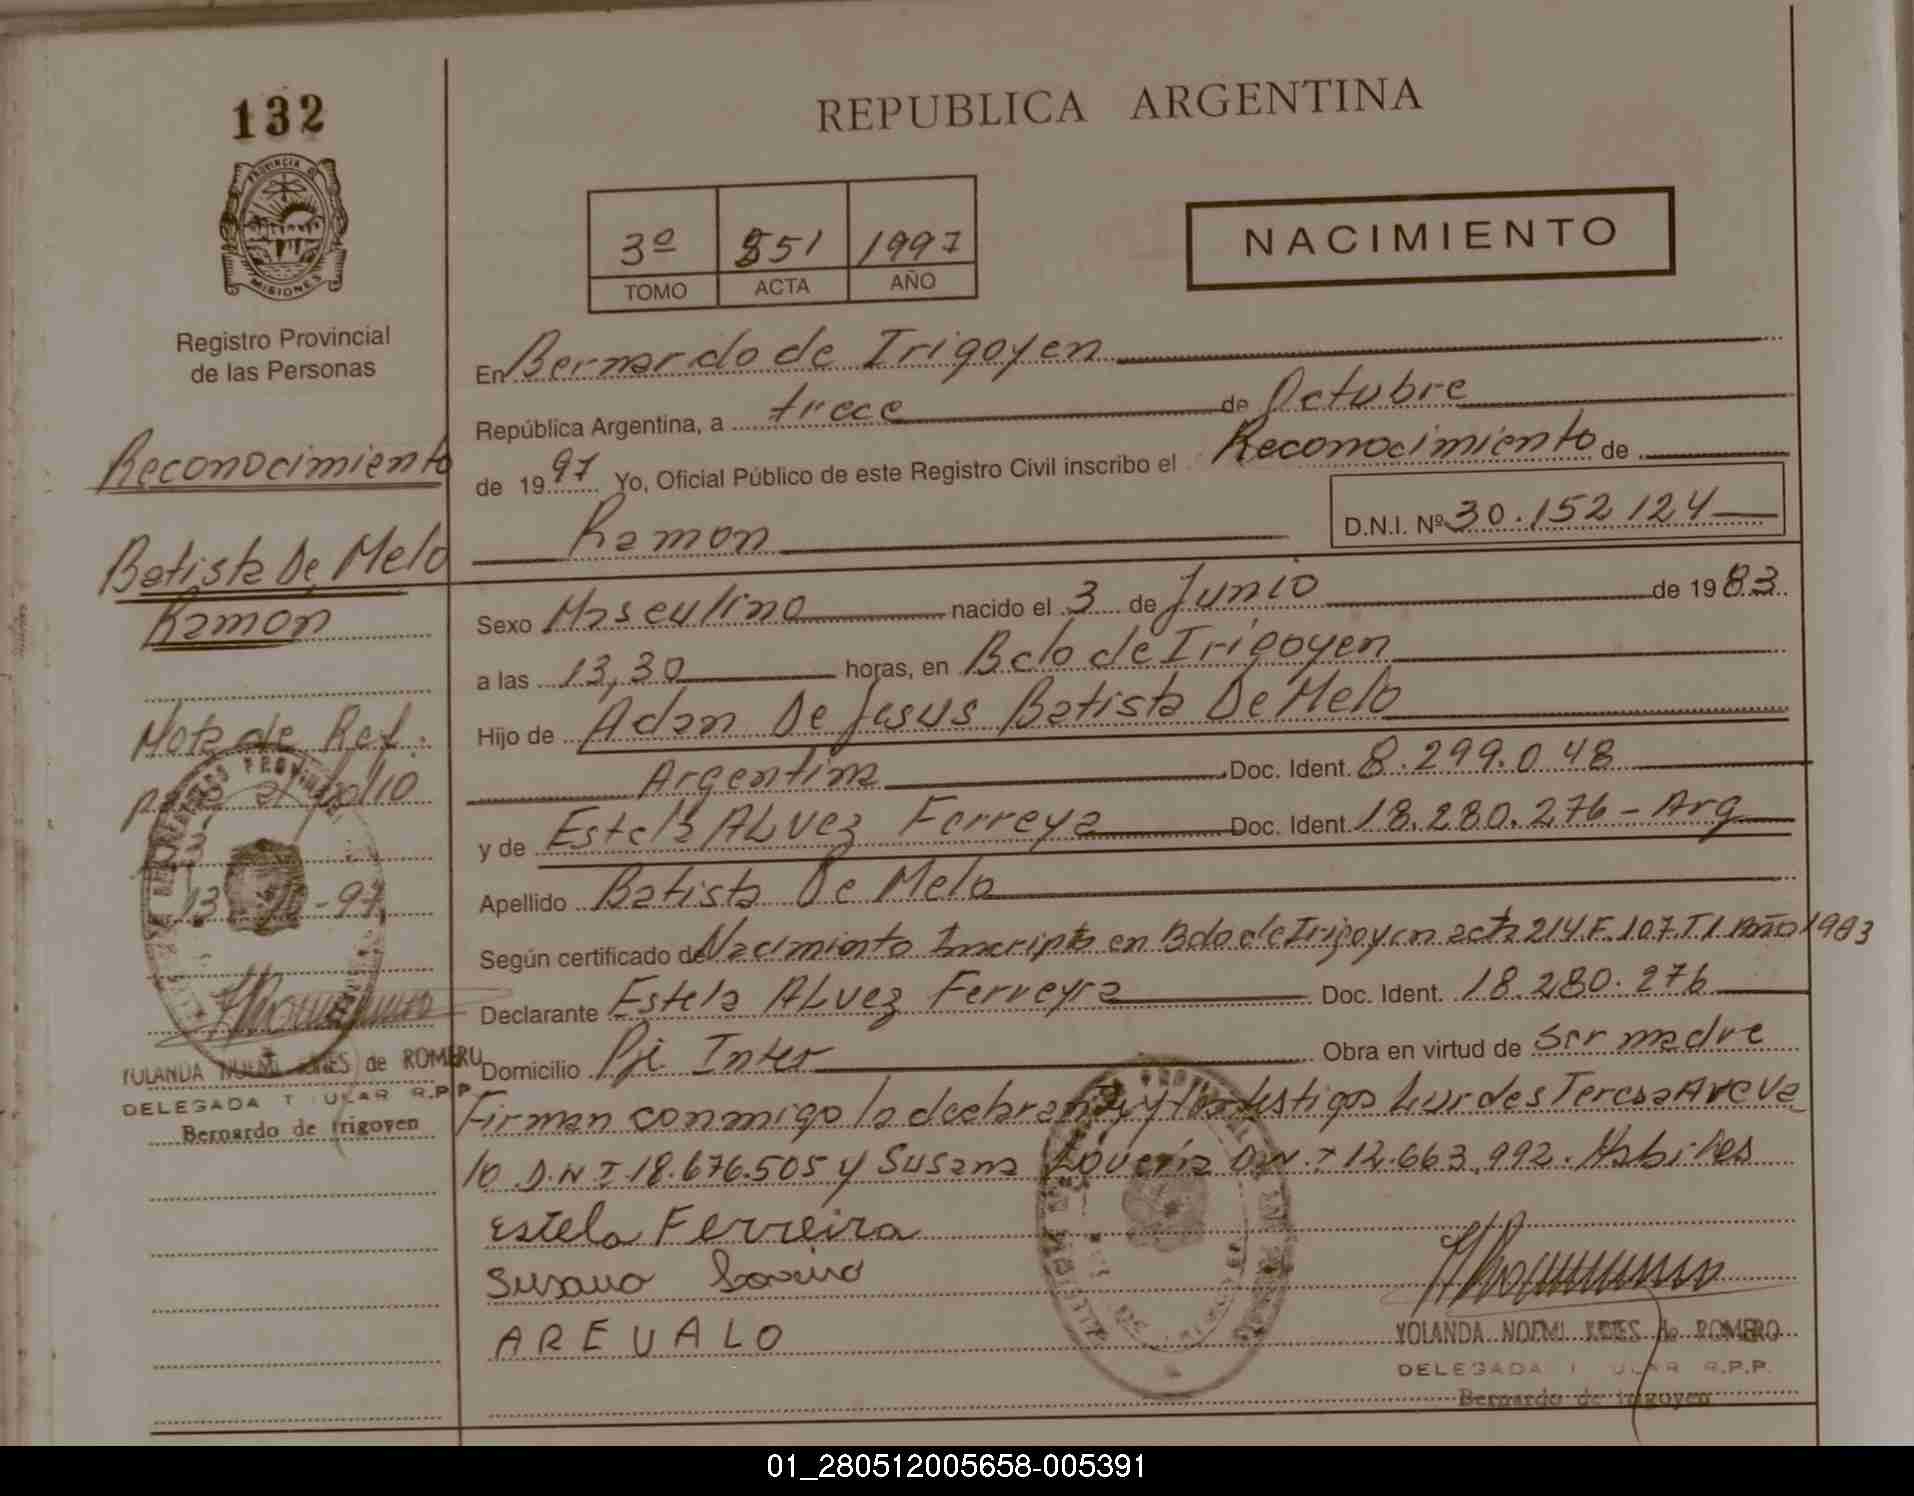 132
REPUBLICA ARGENTINA
PROVINCIA DE MISIONES
3º 551 1997
TOMO ACTA AÑO
NACIMIENTO
Registro Provincial
de las Personas
En Bernardo de Irigoyen
República Argentina, a trece de Octubre
de 1997 Yo, Oficial Público de este Registro Civil inscribo el Reconocimiento de
Ramon D.N.I. Nº 30.152 124
Reconocimiento
Batista De Melo
Ramon
Sexo Masculino nacido el 3 de Junio de 1983
a las 13,30 horas, en Bdo de Irigoyen
Hijo de Adan De Jesus Batista De Melo
Argentina Doc. Ident. 8.299.048
y de Estela ALvez Ferreya Doc. Ident 18.280.276 - Arg
Apellido Batista De Melo
Según certificado de Nacimiento Inscripto en Bdo de Irigoyen acta 214 F. 107 T 1 Año 1983
Declarante Estela ALvez Ferreyra Doc. Ident. 18.280.276
Domicilio Pje Inter Obra en virtud de ser madre
Firman conmigo la declarante y los testigos Lurdes Teresa Areva
lo D.N I 18.676.505 y Susana D.N.I 12.663.992. Habiles
Estela Ferreira
Susana
AREVALO
Nota de Ref.
al folio
13 -97
YOLANDA NOEMI de ROMERO
DELEGADA TITULAR R.P.P.
Bernardo de Irigoyen
YOLANDA NOEMI de ROMERO
DELEGADA TITULAR R.P.P.
Bernardo de Irigoyen
01_280512005658-005391